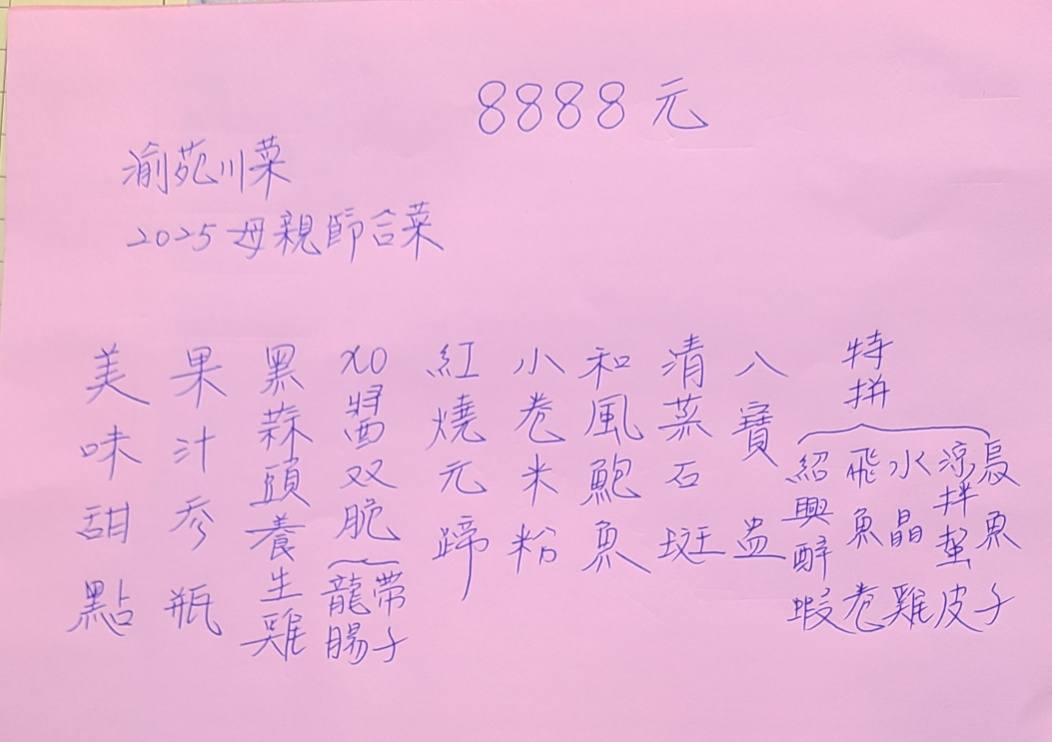 8888元
渝苑川菜
2025母親節合菜
特拼
烏魚子
涼拌蜇皮
水晶雞
飛魚卷
紹興醉蝦
八寶盅
清蒸石斑
和風鮑魚
小卷米粉
紅燒元蹄
XO醬双脆
帶子
龍腸
黑蒜頭養生雞
果汁参瓶
美味甜點